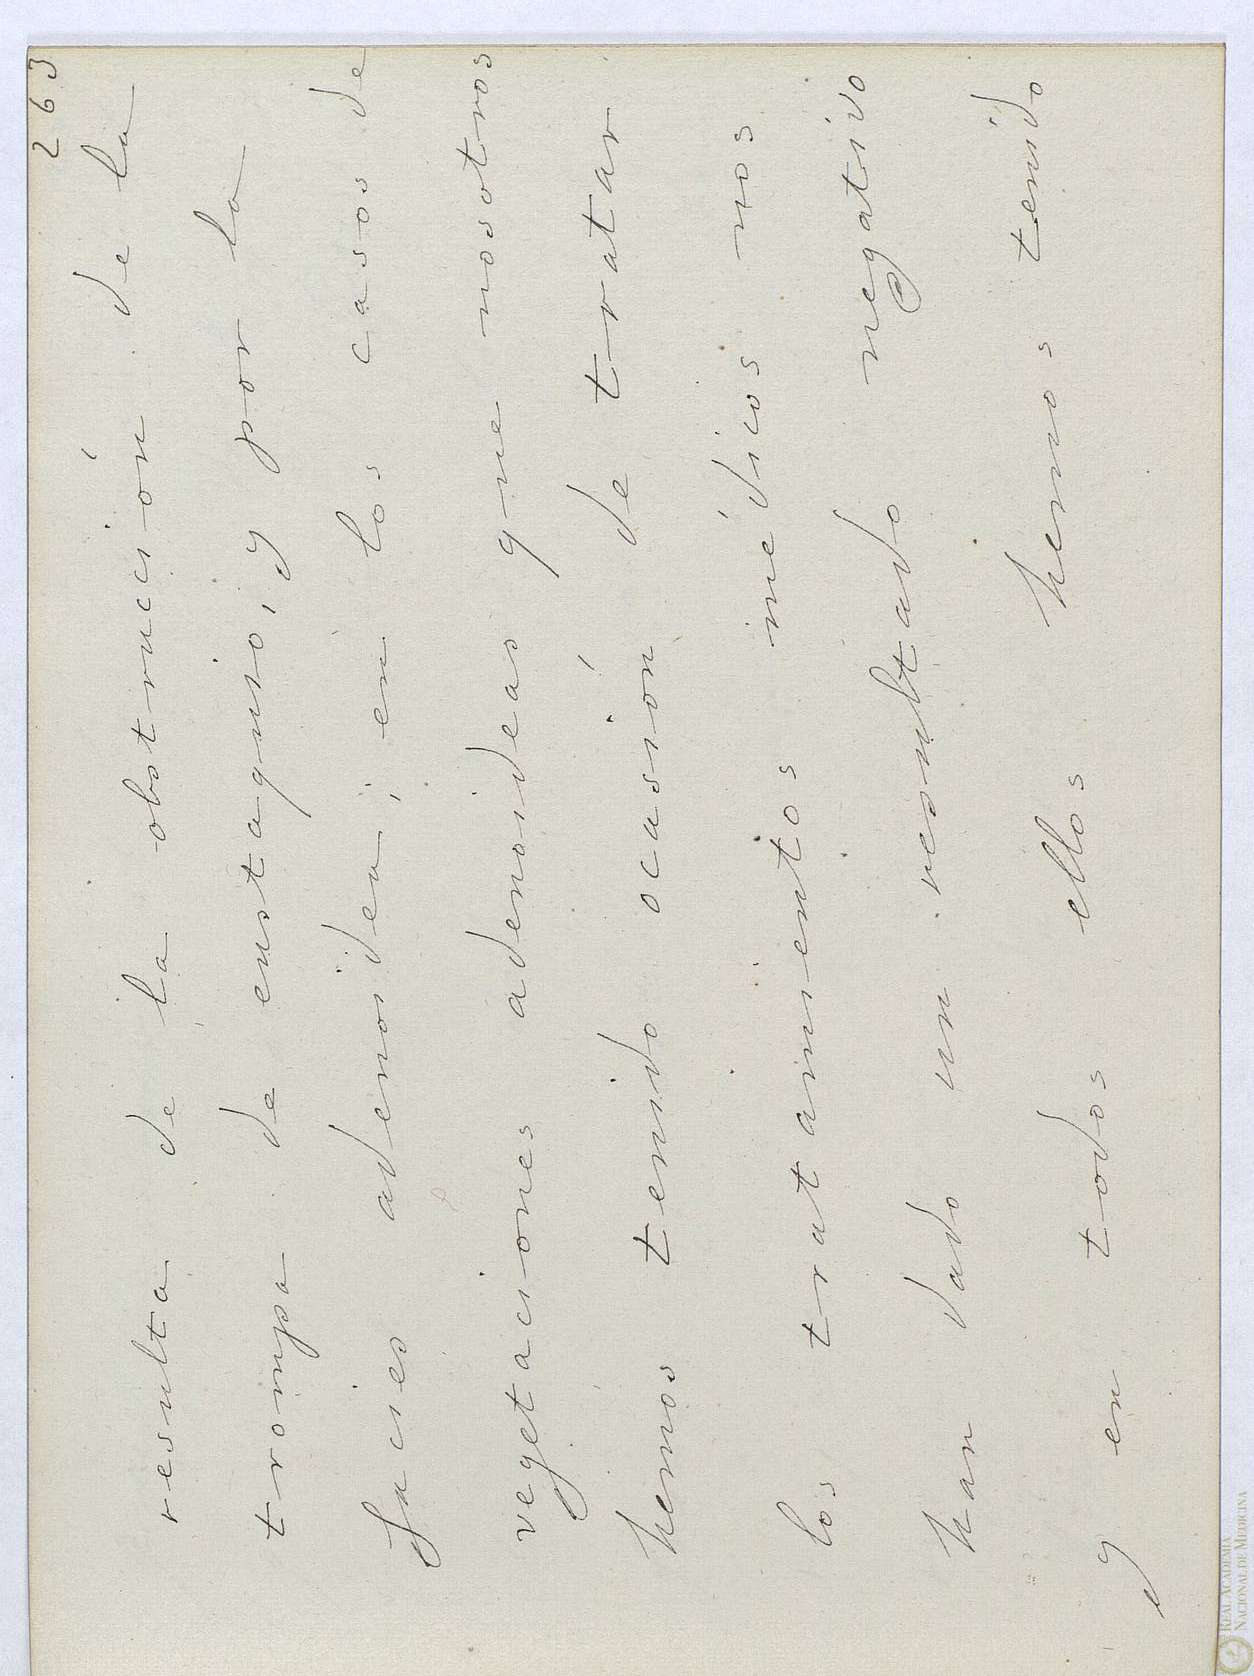 263
resulta de la obstrucción de la
trompa de eustaquio, y por la
facies adenoidea; en los casos de
vegetaciones adenoideas que nosotros
hemos tenido ocasión de tratar
los tratamientos médicos nos
han dado un resultado negativo
y en todos ellos hemos tenido
REAL ACADEMIA
NACIONAL DE MEDICINA